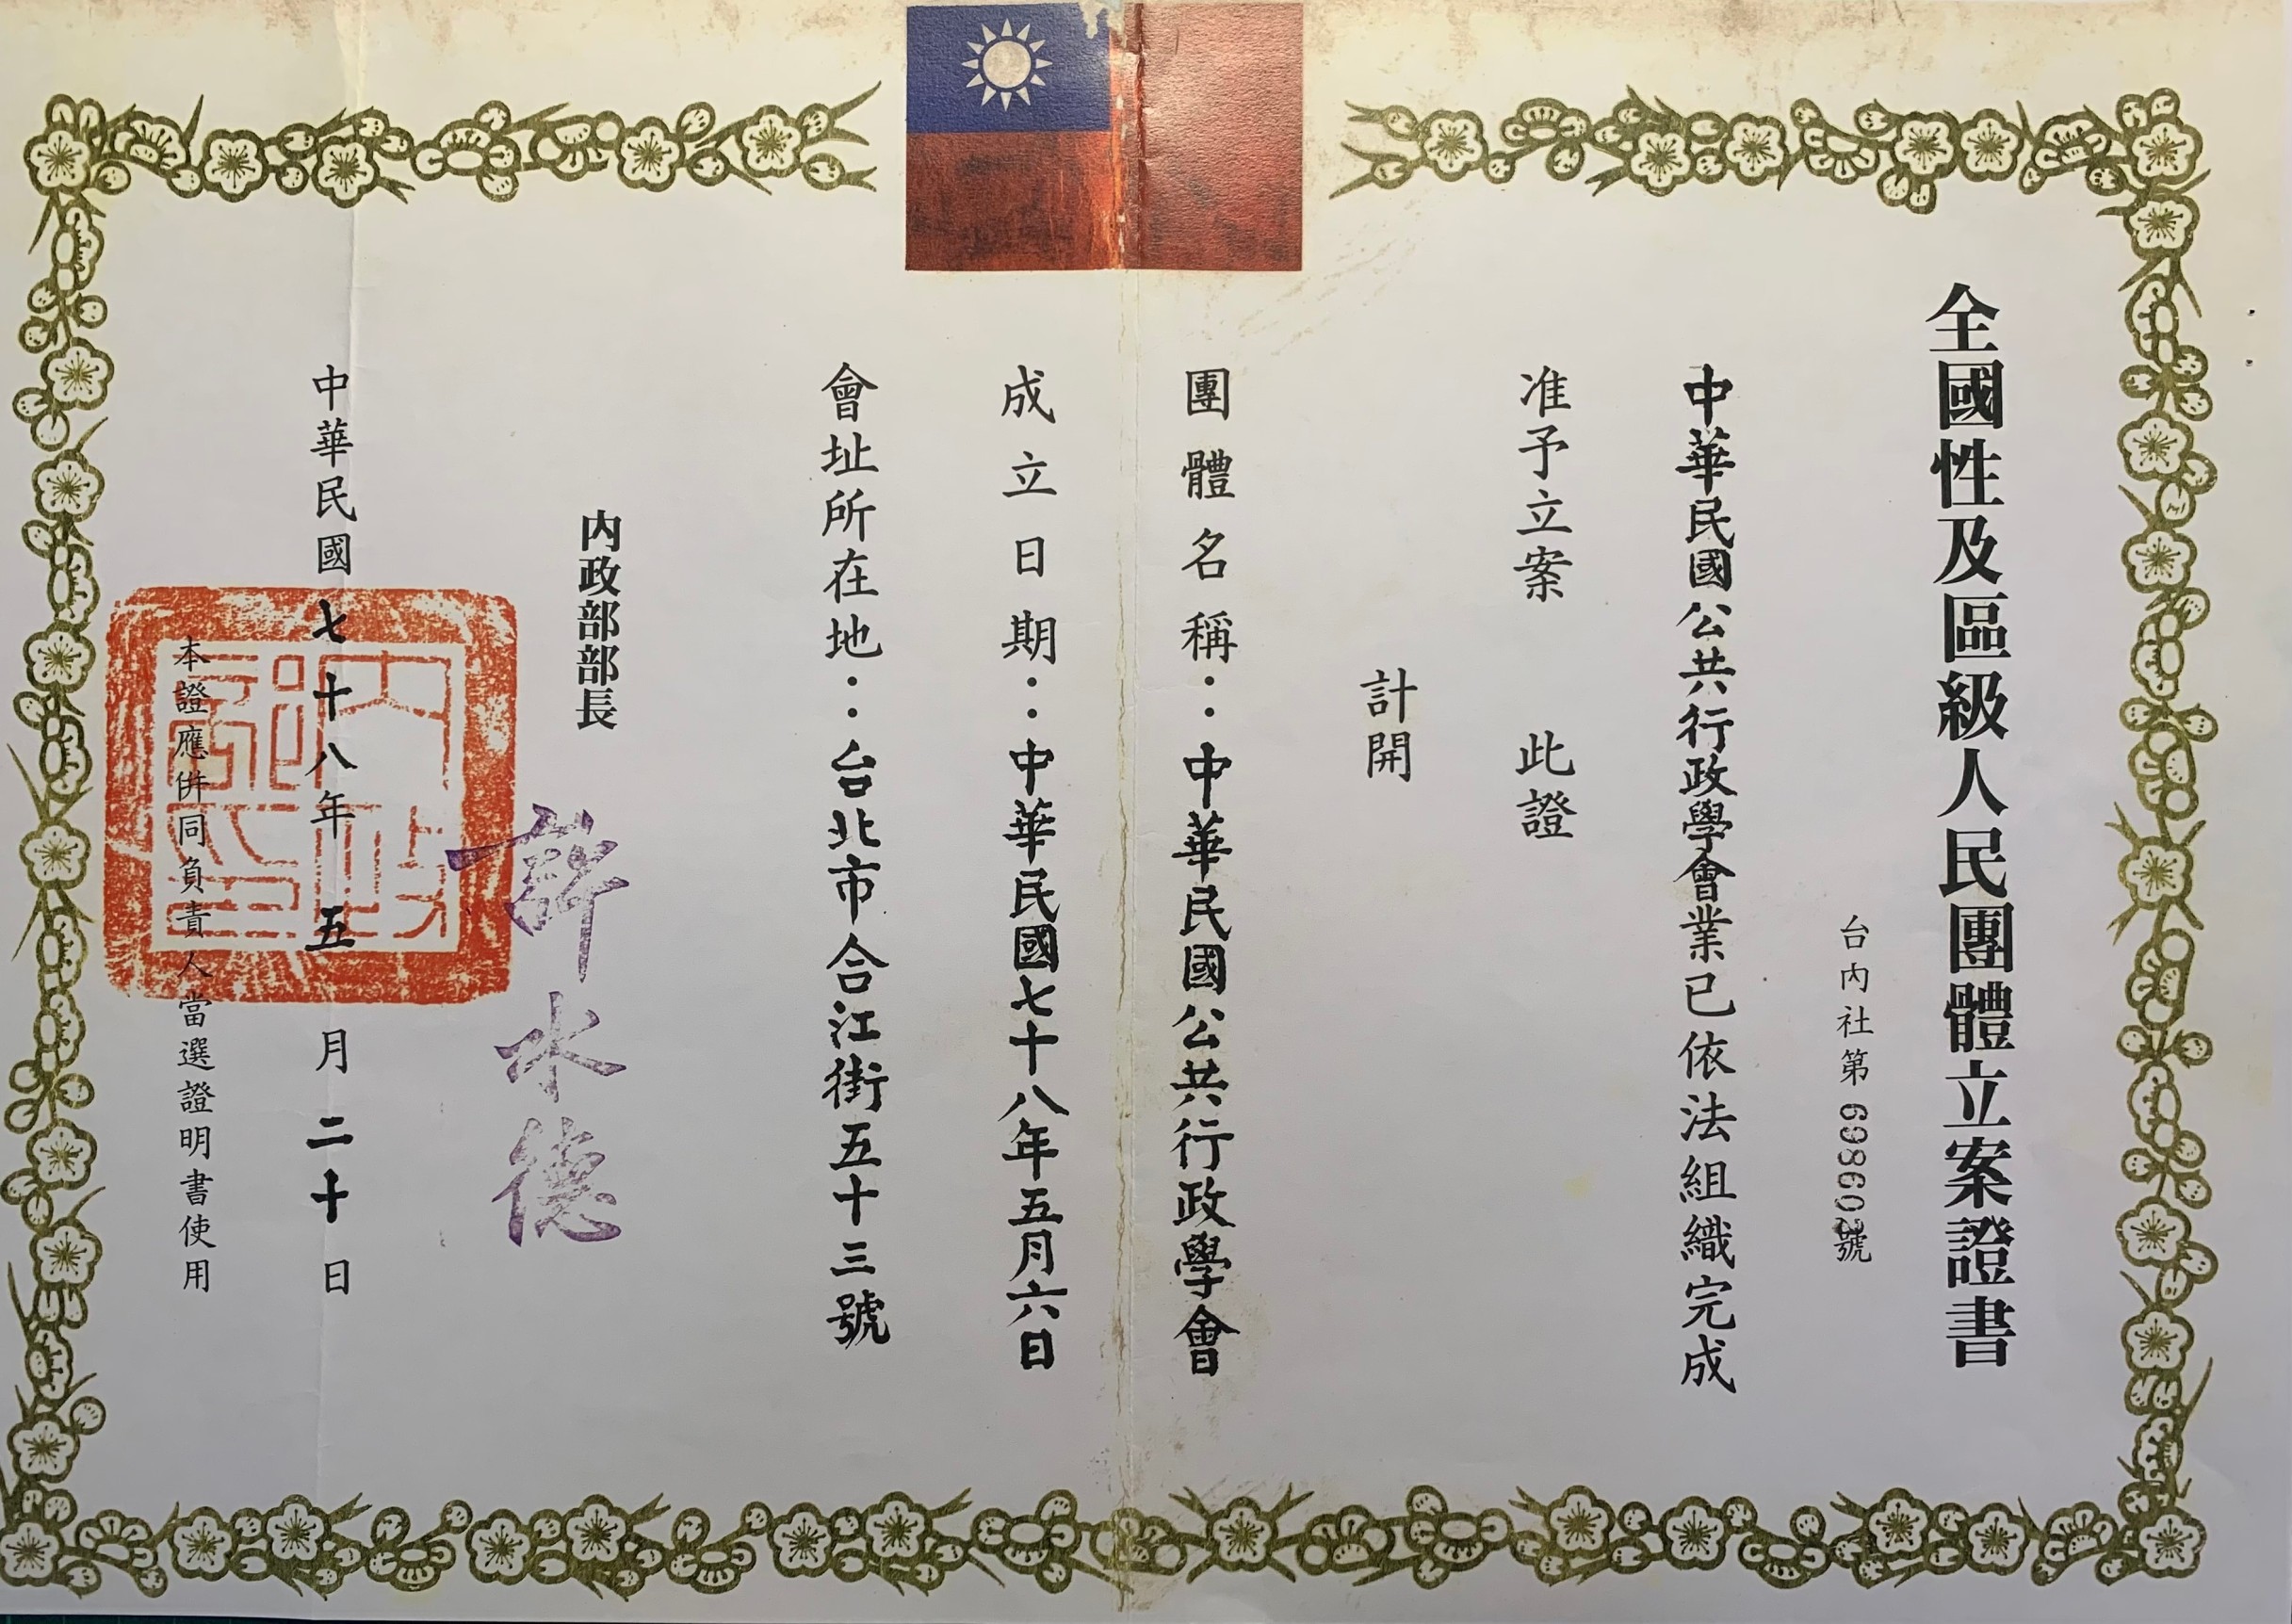 全國性及區級人民團體立案證書
台內社第 698602號
中華民國公共行政學會業已依法組織完成
准予立案 此證
計開
團體名稱：中華民國公共行政學會
成立日期：中華民國七十八年五月六日
會址所在地：台北市合江街五十三號
內政部部長 許水德
中華民國七十八年五月二十日
本證應併同負責人當選證明書使用
內政部印